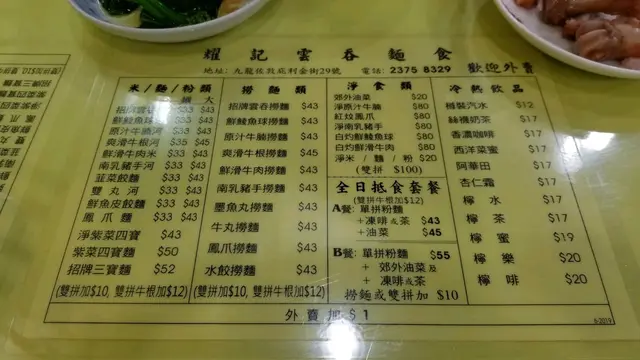 耀記雲吞麵食
地址: 九龍佐敦庇利金街29號 電話: 2375 8329 歡迎外賣
米/麵/粉類
細 大
招牌雲吞 $33 $43
鮮鯪魚球 $33 $43
原汁牛腩河 $33 $43
爽滑牛根河 $35 $45
鮮滑牛肉米 $33 $43
南乳豬手河 $33 $43
韮菜餃麵 $33 $43
雙丸河 $33 $43
鮮魚皮餃麵 $33 $43
鳳爪麵 $33 $43
淨紫菜四寶 $43
紫菜四寶麵 $50
招牌三寶麵 $52
(雙拼加$10, 雙拼牛根加$12)
撈麵類
招牌雲吞撈麵 $43
鮮鯪魚球撈麵 $43
原汁牛腩撈麵 $43
爽滑牛根撈麵 $45
鮮滑牛肉撈麵 $43
南乳豬手撈麵 $43
墨魚丸撈麵 $43
牛丸撈麵 $43
鳳爪撈麵 $43
水餃撈麵 $43
(雙拼加$10, 雙拼牛根加$12)
淨食類
郊外油菜 $20
淨原汁牛腩 $80
紅炆鳳爪 $80
淨南乳豬手 $80
白灼鮮鯪魚球 $80
白灼鮮滑牛肉 $80
淨米/麵/粉 $20
(雙拼 $100)
全日抵食套餐
(雙拼牛根加$12)
A餐: 單拼粉麵
+凍啡或茶 $43
+油菜 $45
B餐: 單拼粉麵 $55
+ 郊外油菜及
+ 凍啡或茶
撈麵或雙拼加 $10
冷熱飲品
樽裝汽水 $12
絲襪奶茶 $17
香濃咖啡 $17
西洋菜蜜 $17
阿華田 $17
杏仁霜 $17
檸水 $17
檸茶 $17
檸蜜 $19
檸樂 $20
檸啡 $20
外賣加$1
6-2019